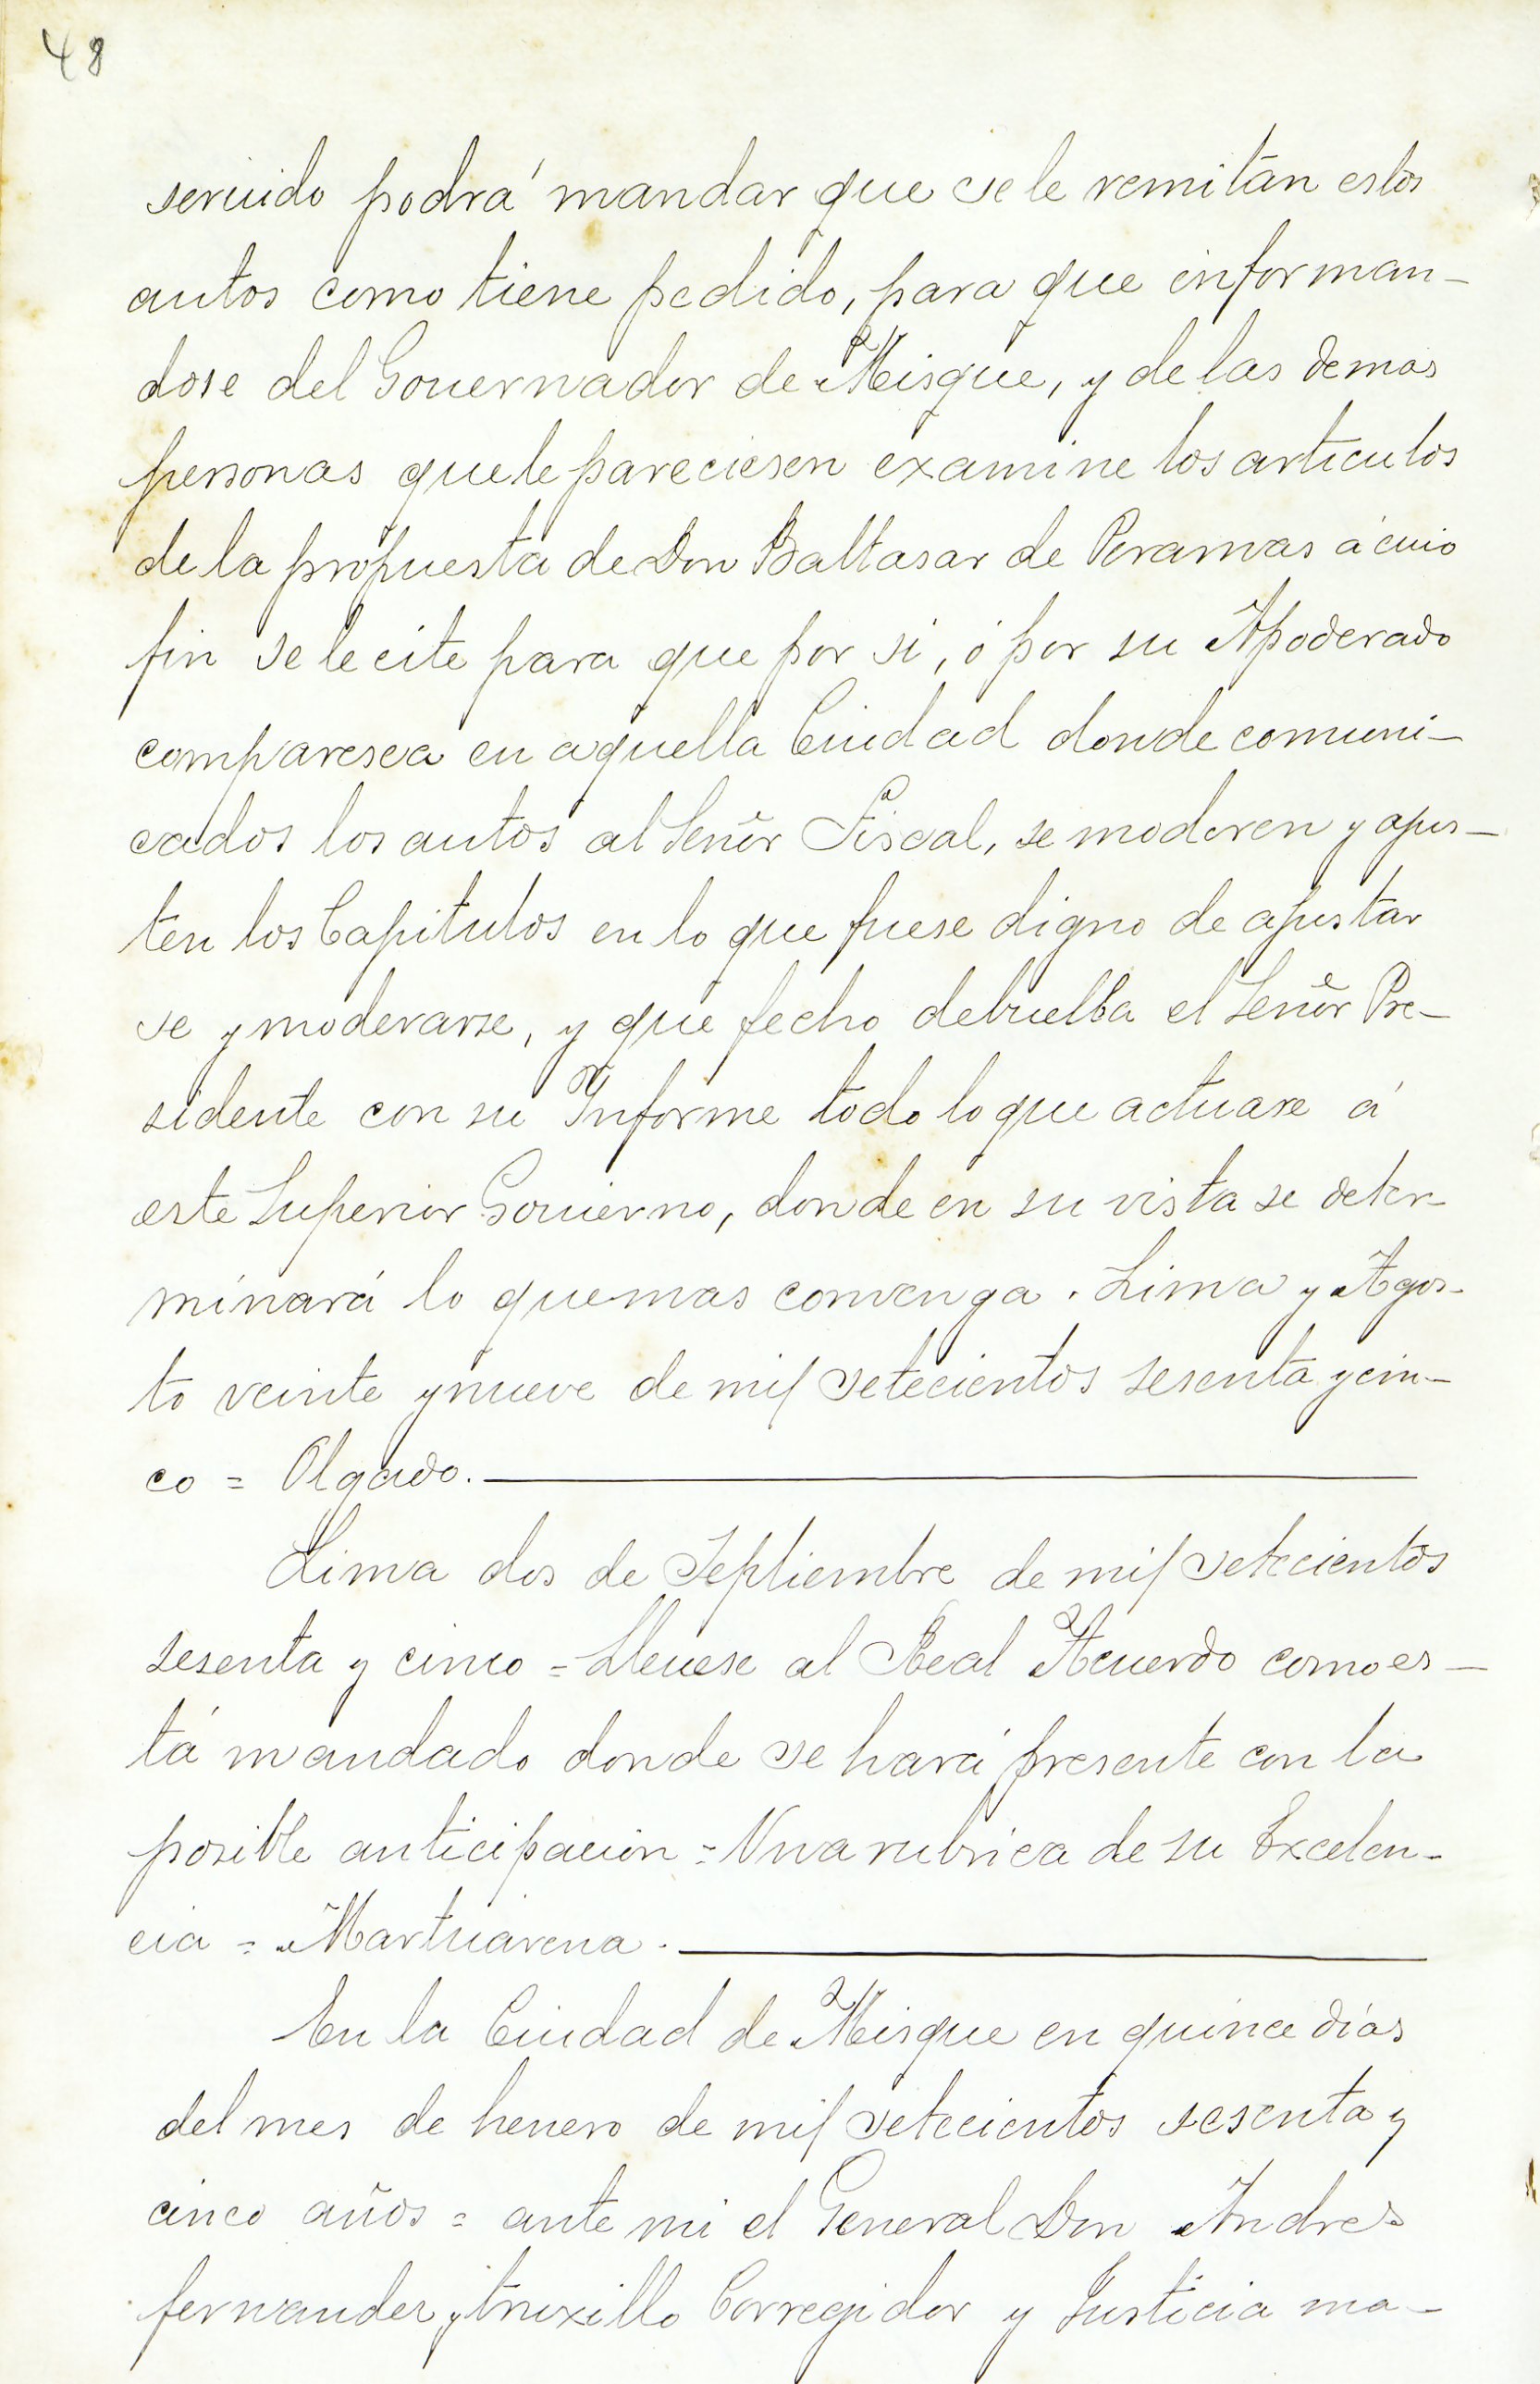 48
seruido podrá mandar que se le remitan estos
autos como tiene pedido, para que informan-
dose del Gouernador de Misque, y de las demas
personas que le pareciesen examine los articulos
de la propuesta de Don Baltasar de Peramas á cuio
fin se le cite para que por si, ó por su Apoderado
comparesca en aquella Ciudad donde comuni-
cados los autos al Señor Fiscal, se moderen y ajus-
ten los Capitulos en lo que fuese digno de ajustar
se y moderarse, y que fecho debuelba el Señor Pre-
sidente con su Informe todo lo que actuase á
este Superior Gouierno, donde en su vista se deter-
minará lo que mas convenga. Lima y Agos-
to veinte y nueve de mil setecientos sesenta y cin-
co = Olgado.
Lima dos de Septiembre de mil setecientos
sesenta y cinco = Lleuese al Real Acuerdo como es-
tá mandado donde se hará presente con la
posible anticipacion = Vna rubrica de su Excelen-
cia = Martiarena.
En la Ciudad de Misque en quince dias
del mes de henero de mil setecientos sesenta y
cinco años = ante mi el General Don Andres
fernandez y truxillo Corregidor y Justicia ma-